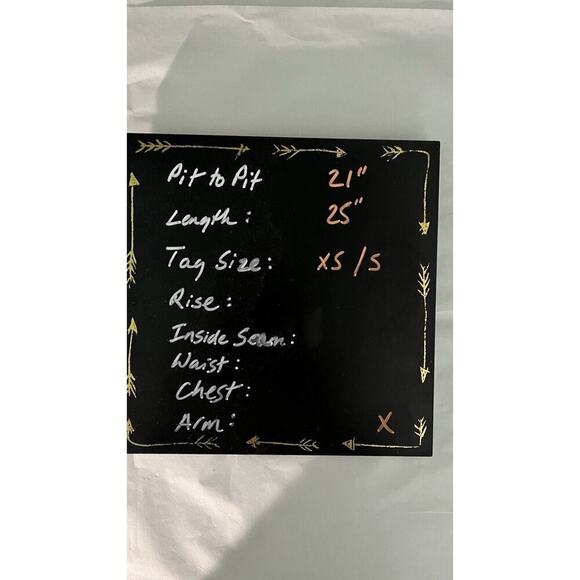 Pit to Pit 21"
Length: 25"
Tag Size: XS/S
Rise:
Inside Seam:
Waist:
Chest:
Arm: X